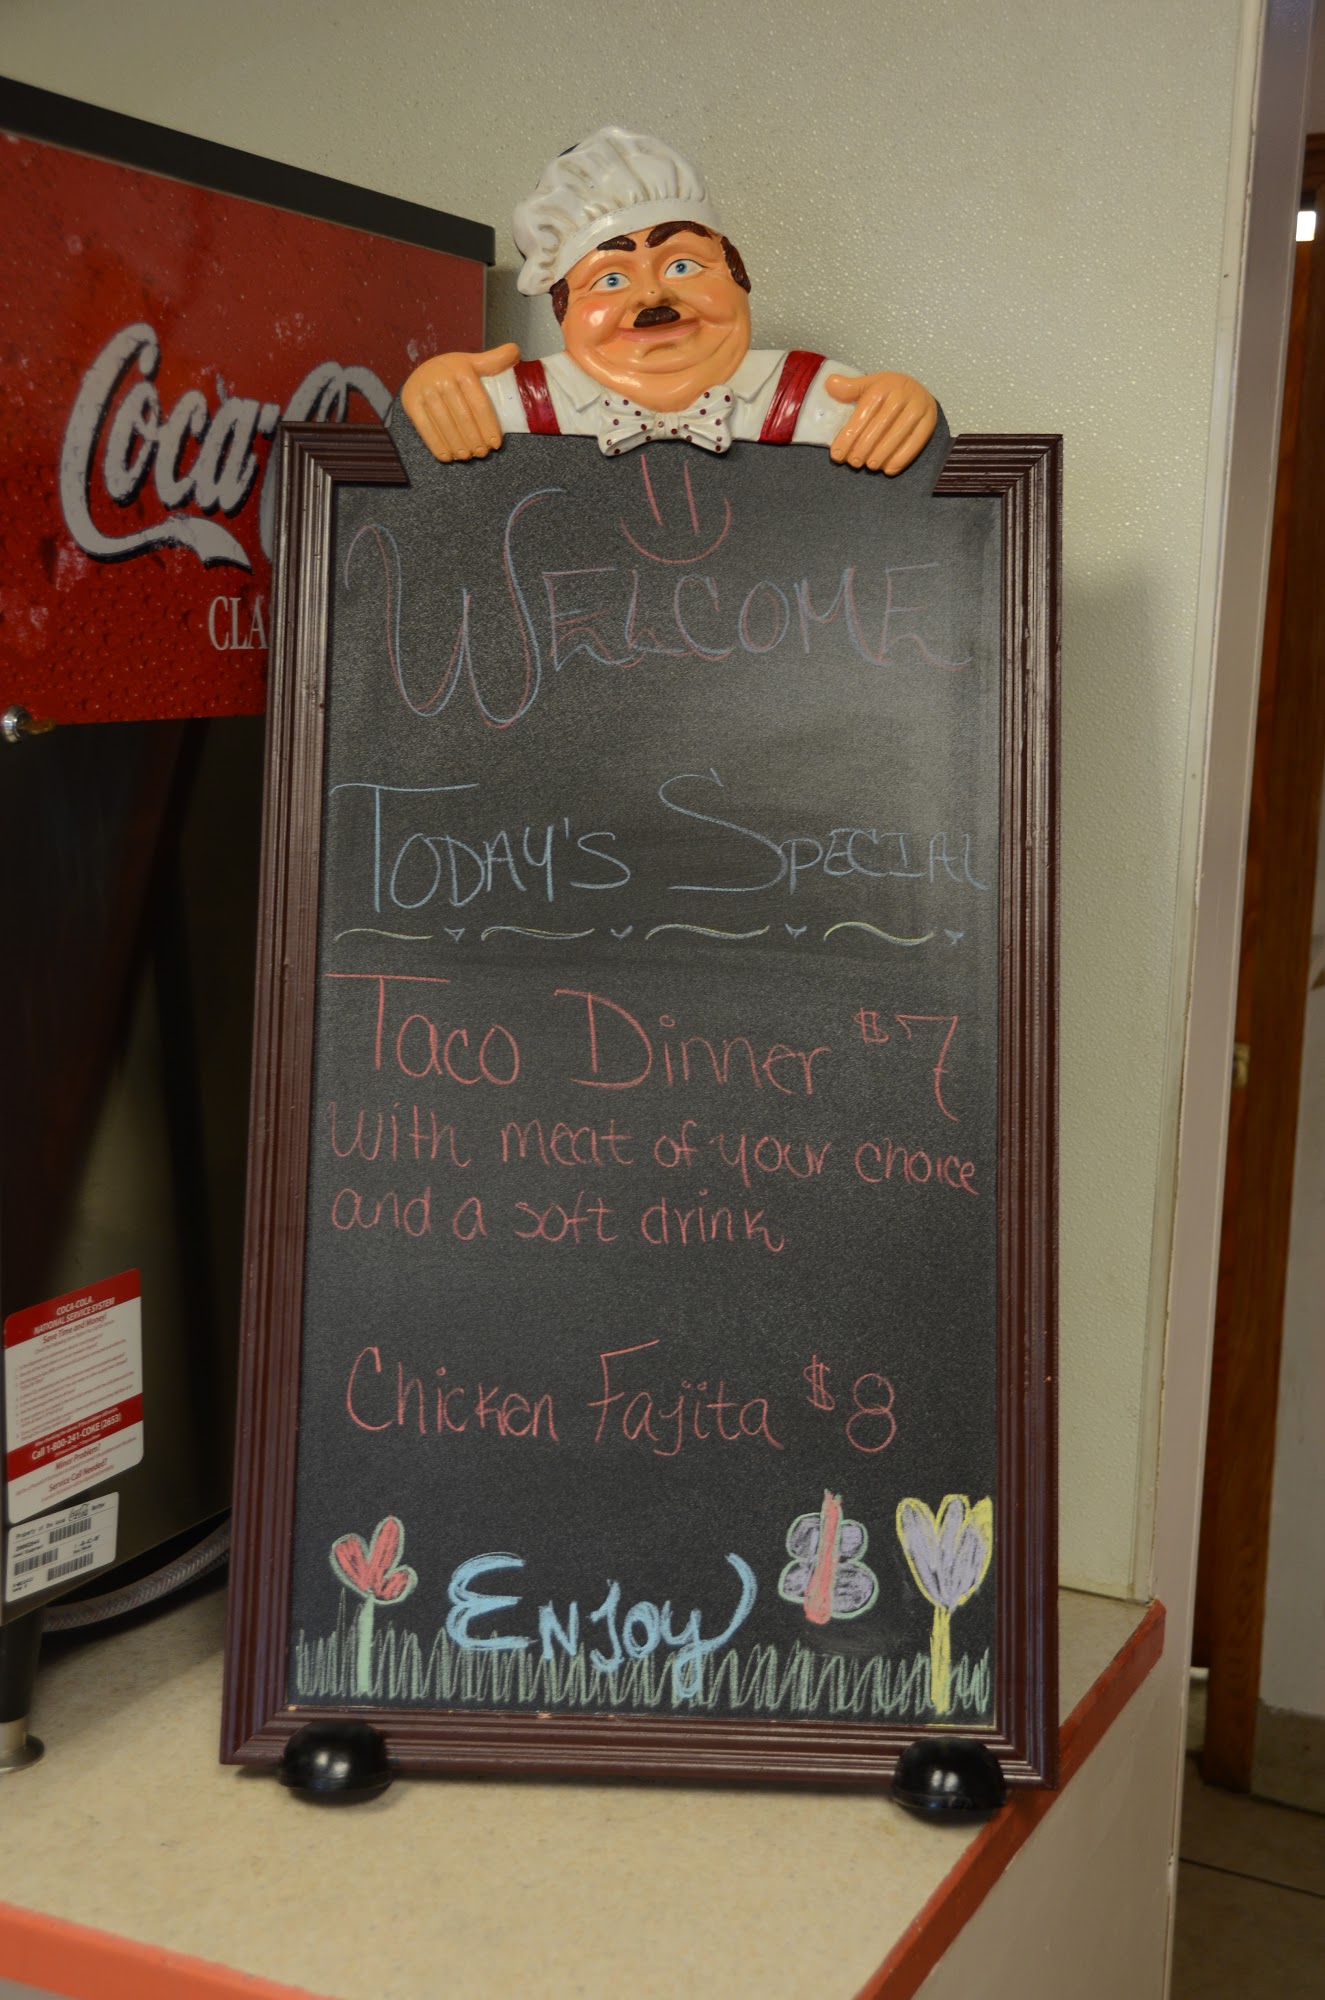 Coca
CLA
WELCOME
TODAY'S SPECIAL
Taco Dinner $7
with meat of your choice
and a soft drink
Chicken Fajita $8
ENJOY
COCA-COLA
NATIONAL SERVICE SYSTEM
Save Time and Money!
Call 1-800-241-COKE (2653)
Minor Problem?
Service Call Needed?
Property of the